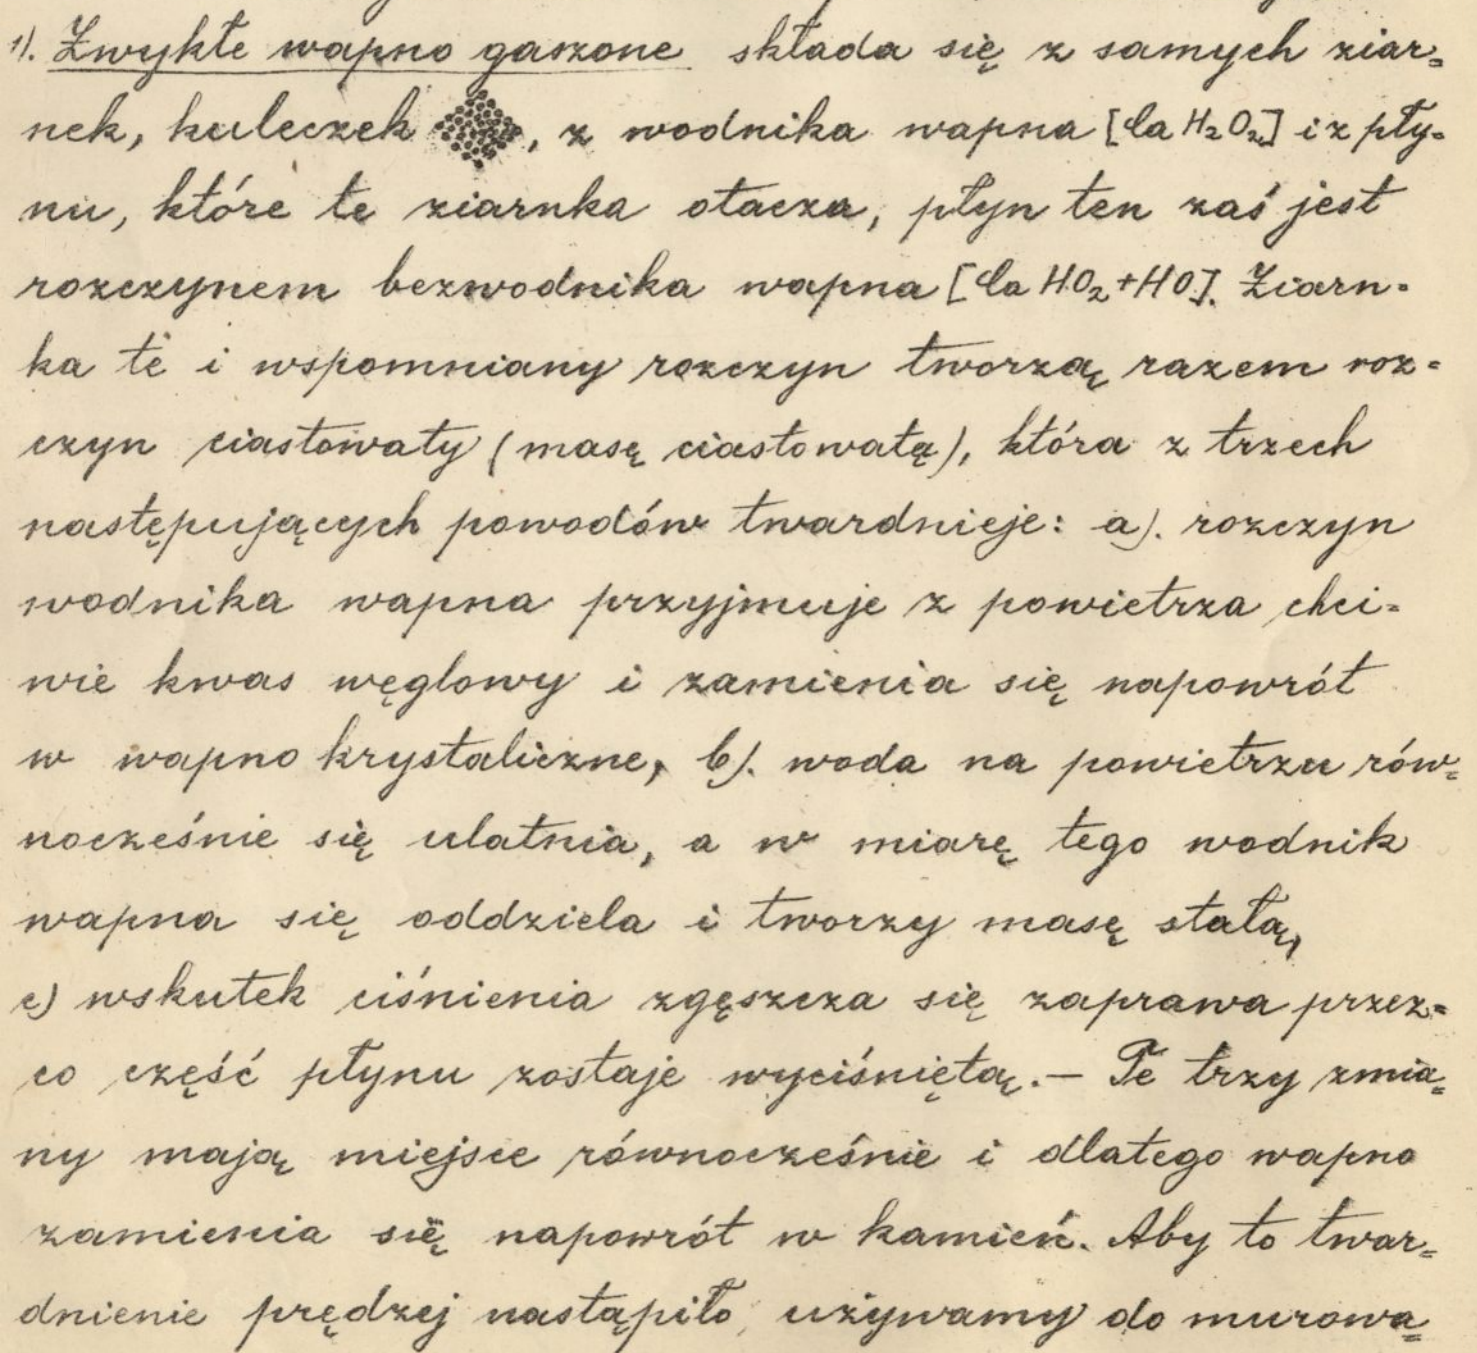 1). Zwykłe wapno gaszone składa się z samych ziar=
nek, kuleczek , z wodnika wapna [Ca H₂O₂] i z pły=
nu, które te ziarnka otacza, płyn ten zaś jest
rozczynem bezwodnika wapna [Ca HO₂+HO]. Ziarn=
ka te i wspomniany rozczyn tworzą razem roz=
czyn ciastowaty (masę ciastowatą), która z trzech
następujących powodów twardnieje: a). rozczyn
wodnika wapna przyjmuje z powietrza chci=
wie kwas węglowy i zamienia się napowrót
w wapno krystaliczne, b). woda na powietrzu rów=
nocześnie się ulatnia, a w miarę tego wodnik
wapna się oddziela i tworzy masę stałą,
c) wskutek ciśnienia zgęszcza się zaprawa przez=
co część płynu zostaje wyciśniętą. — Te trzy zmia=
ny mają miejsce równocześnie i dlatego wapno
zamienia się napowrót w kamień. Aby to twar=
dnienie prędzej nastąpiło, używamy do murowa=